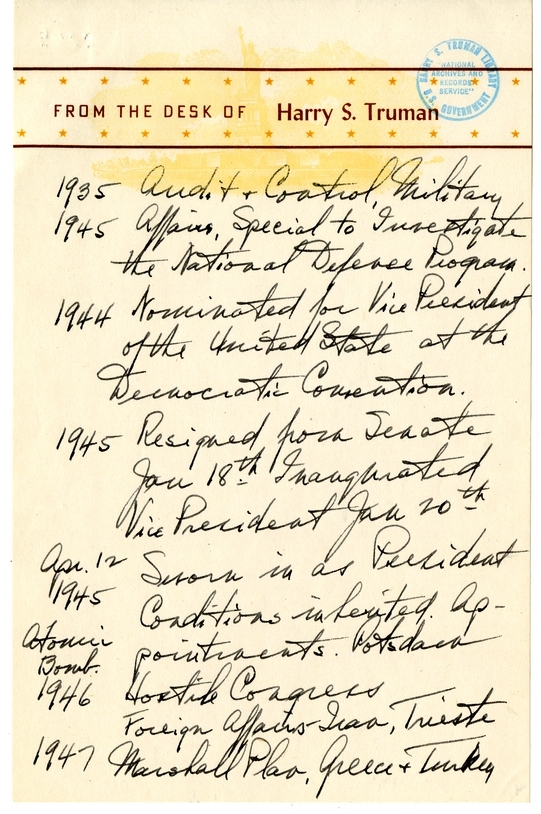 HARRY S. TRUMAN LIBRARY
"NATIONAL
ARCHIVES AND
RECORDS
SERVICE"
U.S. GOVERNMENT
FROM THE DESK OF Harry S. Truman
1935 Audit + Control, Military
1945 Affairs, Special to Investigate
the National Defense Program.
1944 Nominated for Vice President
of the United State at the
Democratic Convention.
1945 Resigned from Senate
Jan 18th Inaugurated
Vice President Jan 20th
Apr. 12 Sworn in as President
1945 Conditions inherited. Ap-
Atomic pointments. Potsdam
Bomb.
1946 Hostile Congress
Foreign Affairs-Iran, Trieste
1947 Marshall Plan, Greece + Turkey